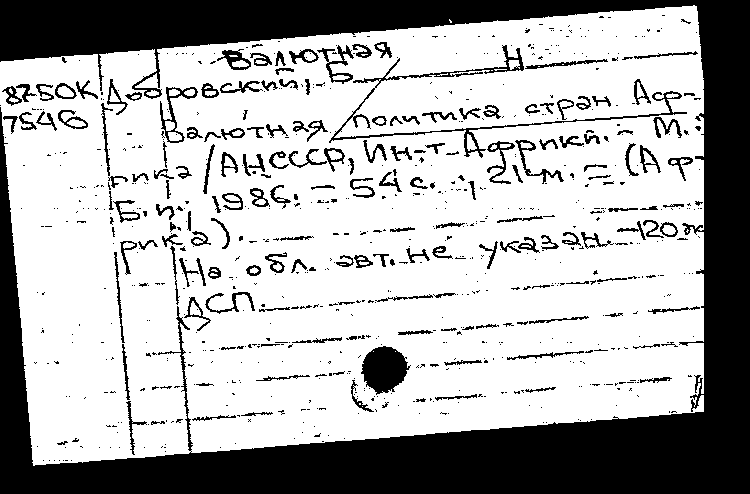 Валютная Н
8750К Дворовский, Б.
7546 Валютная / политика стран Аф-
рика / АНСССР, Ин-т Африки. - М.:
Б.и., 1986. - 54 с. ; 21 см. - (Аф-
рика).
На обл. авт. не указан. - 120 эк
ДСП.